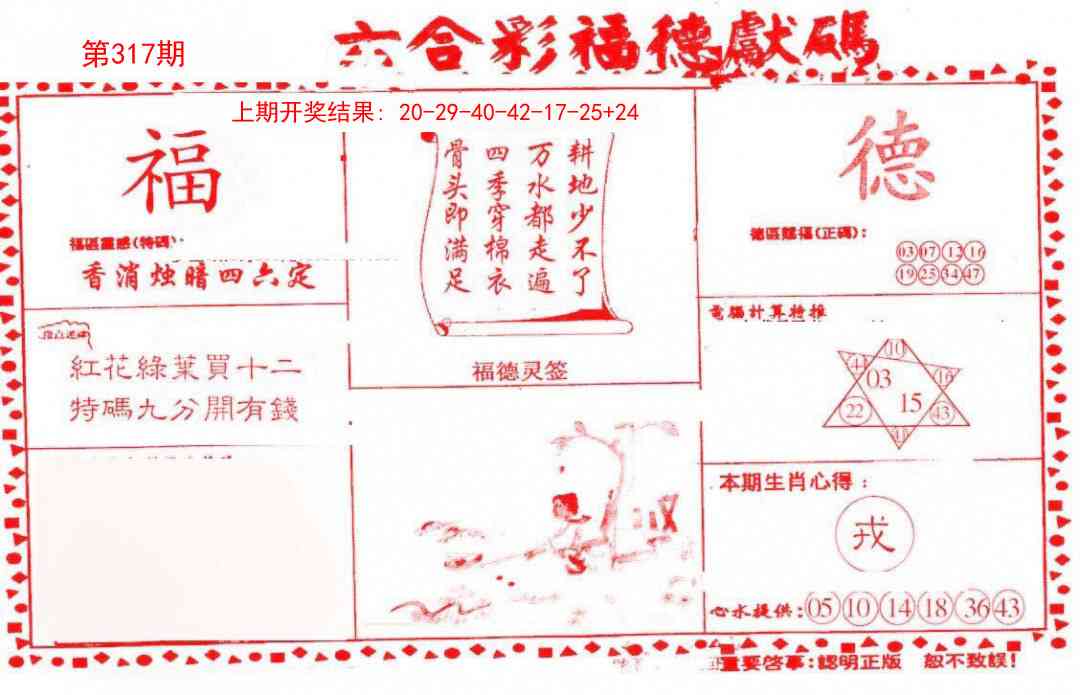 第317期
六合彩福德獻碼
上期开奖结果: 20-29-40-42-17-25+24
福
福區靈感(特碼):
香消烛暗四六定
紅花綠葉買十二
特碼九分開有錢
耕地少不了
万水都走遍
四季穿棉衣
骨头即满足
福德灵签
德
德區賜福(正碼):
03 07 12 16
19 25 34 47
電腦計算特推
10
44 16
03
15
22 43
本期生肖心得:
戎
心水提供:05 10 14 18 36 43
重要啓事:認明正版 恕不致誤!